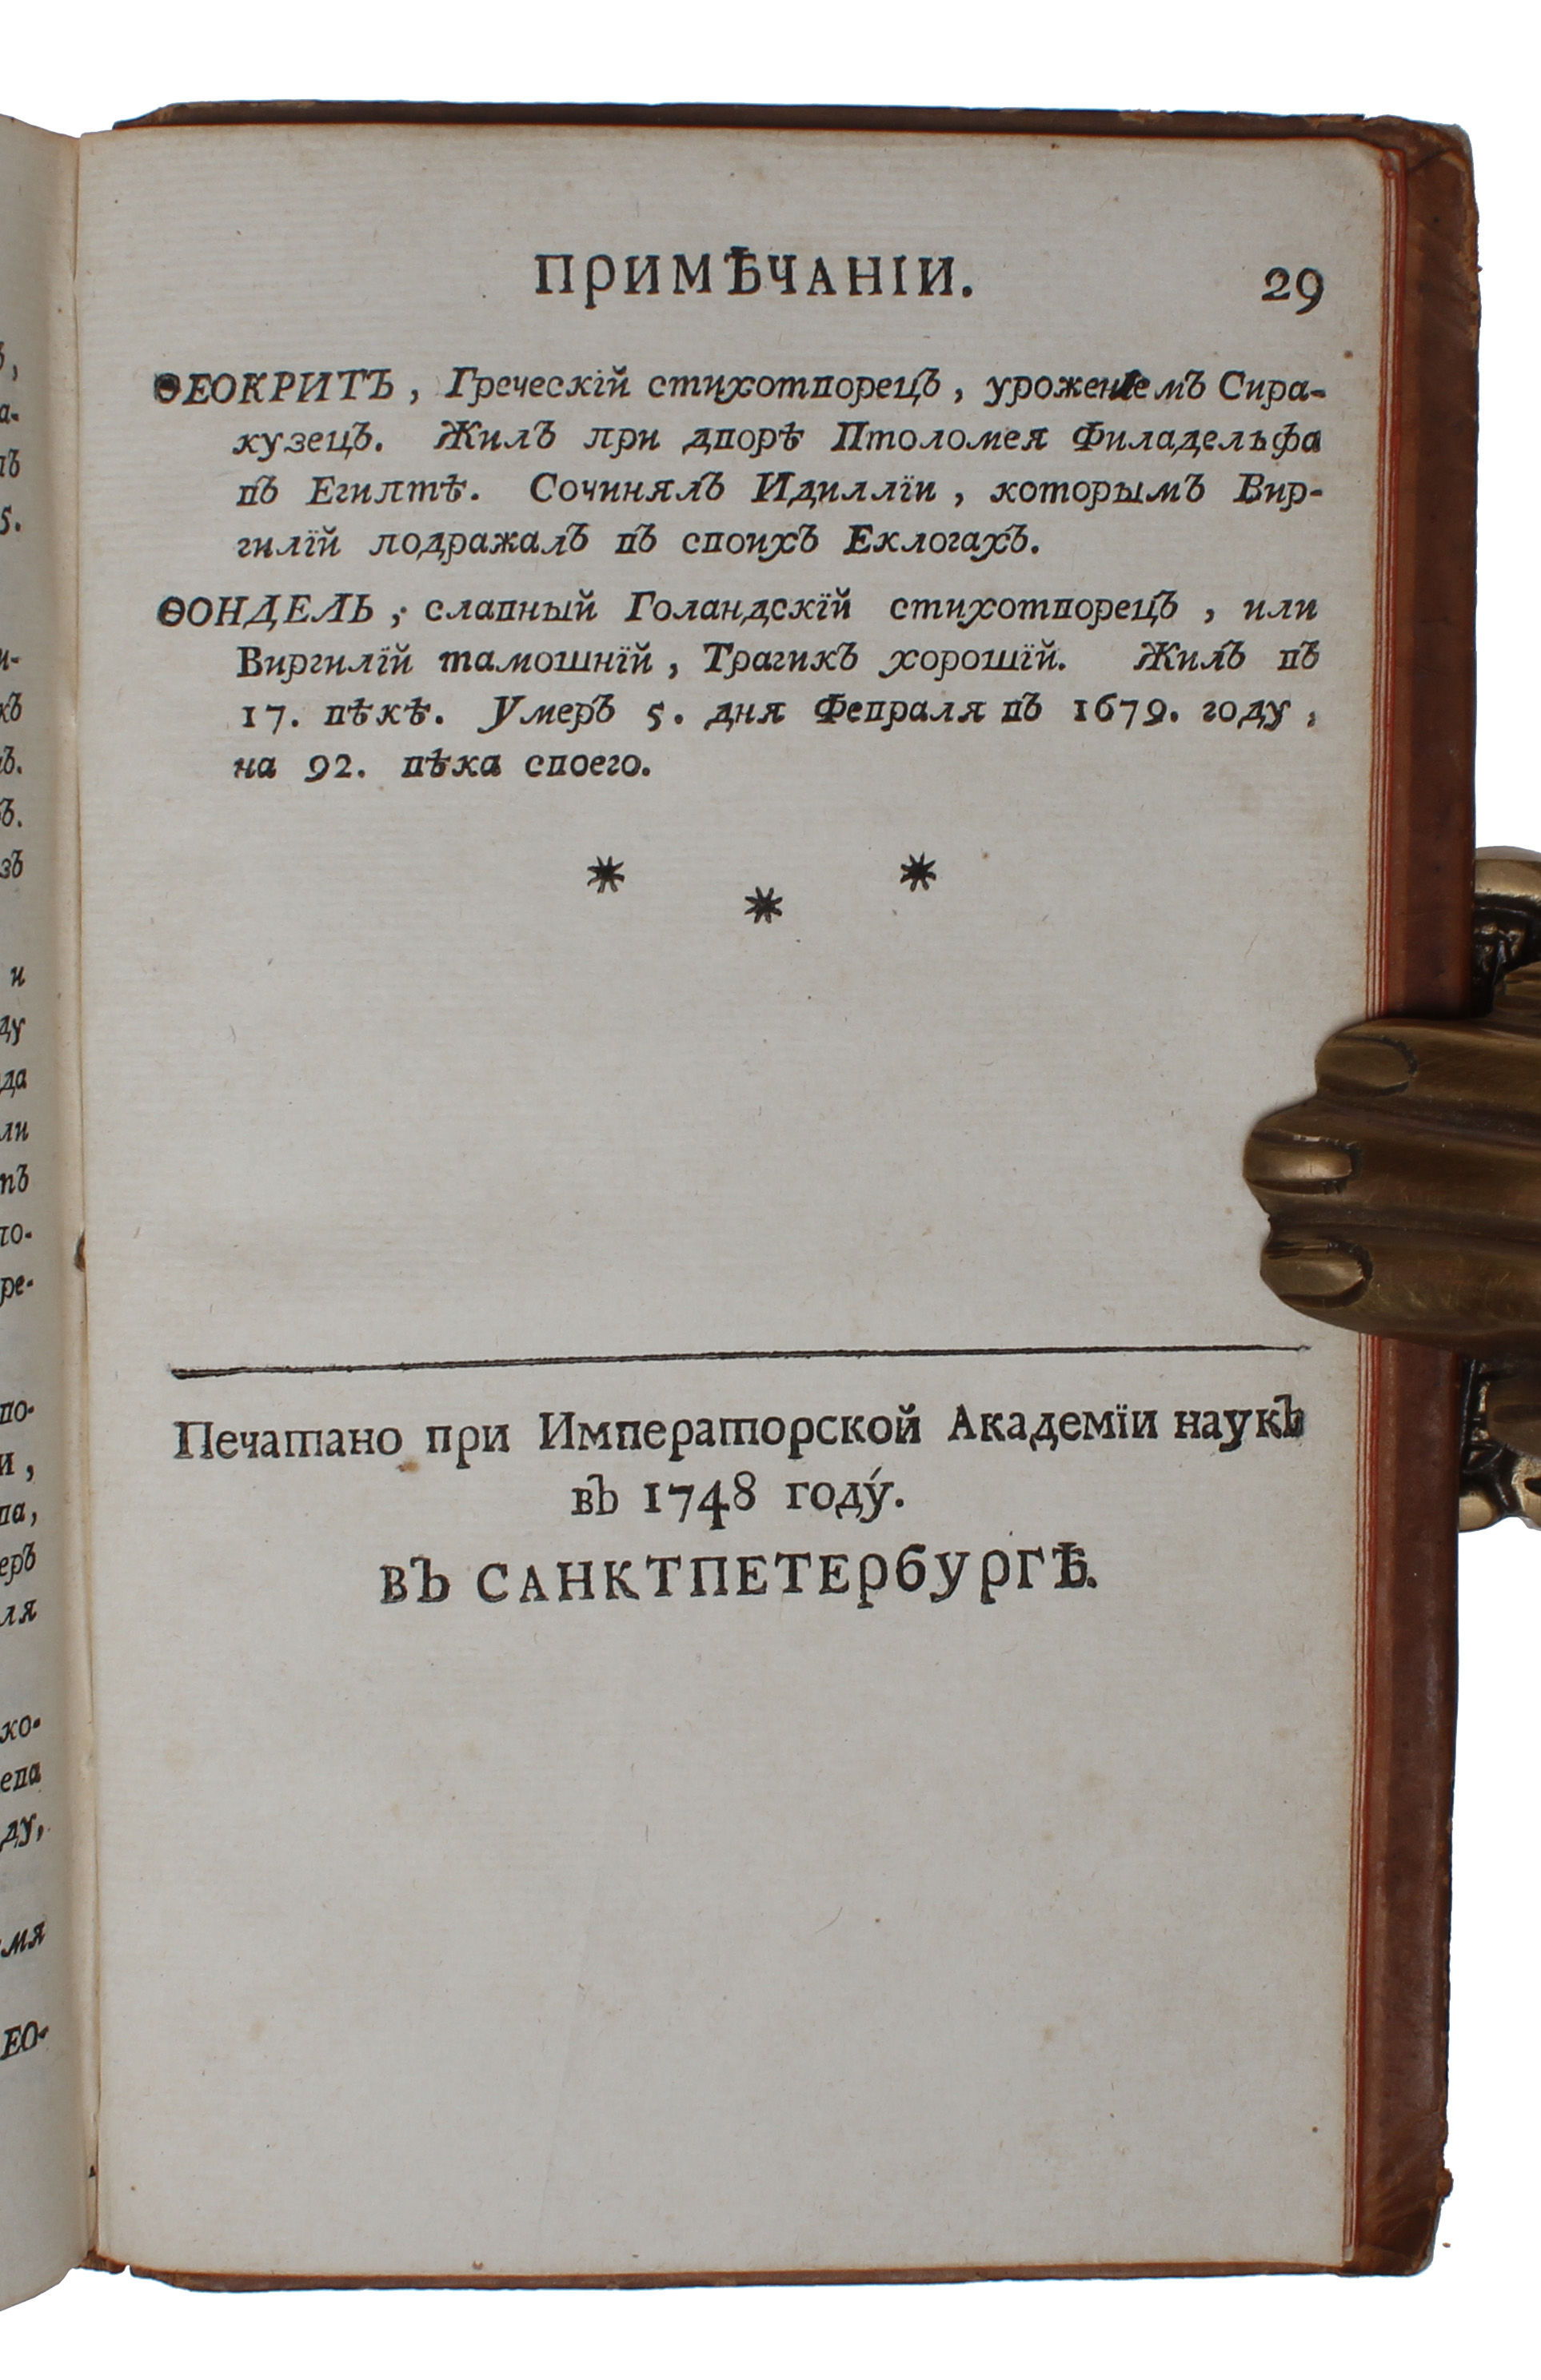 ПРИМѢЧАНІИ. 29
ѲЕОКРИТЪ, Греческій стихотворецъ, уроженїемъ Сира-
кузецъ. Жилъ при дворѣ Птоломея Филадельфа
въ Египтѣ. Сочинялъ Идилліи, которымъ Вир-
гилїй подражалъ въ своихъ Еклогахъ.
ѲОНДЕЛЬ, славный Голандскїй стихотворецъ, или
Виргилїй тамошнїй, Трагикъ хорошїй. Жилъ въ
17. вѣкѣ. Умеръ 5. дня Февраля въ 1679. году,
на 92. вѣка своего.
* * *
Печатано при Императорской Академїи наукъ
въ 1748 году́.
ВЪ САНКТПЕТЕРБУРГѢ.